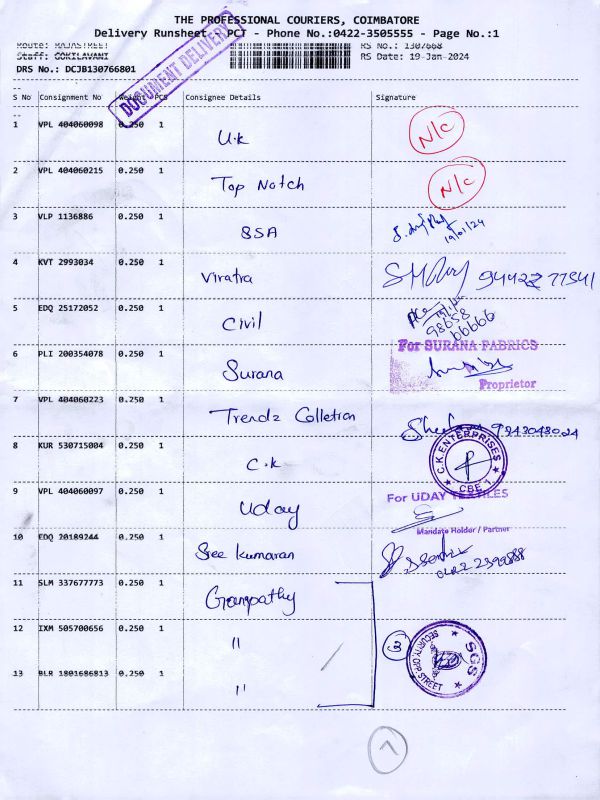 THE PROFESSIONAL COURIERS, COIMBATORE
Delivery Runsheet - PCT - Phone No.:0422-3505555 - Page No.:1
Route: RAJASTREET RS No.: 1307668
Staff: GOKILAVANI RS Date: 19-Jan-2024
DRS No.: DCJB130766801
DOCUMENT DELIVERY
S No Consignment No Weight PCS Consignee Details Signature
1 VPL 404060098 0.250 1 U.k N/C
2 VPL 404060215 0.250 1 Top Notch N/C
3 VLP 1136886 0.250 1 BSA 19/01/24
4 KVT 2993034 0.250 1 Viratra 94422 77541
5 EDQ 25172052 0.250 1 Civil 98658 66666
6 PLI 200354078 0.250 1 Surana For SURANA FABRICS
Proprietor
7 VPL 404060223 0.250 1 Trendz Colletion 9843048024
8 KUR 530715004 0.250 1 C.k C.K ENTERPRISES CBE 1
9 VPL 404060097 0.250 1 Uday For UDAY TEXTILES
Mandate Holder / Partner
10 EDQ 20189244 0.250 1 Sree kumaran 0422 2399888
11 SLM 337677773 0.250 1 Ganapathy
12 IXM 505700656 0.250 1 " 3 SGS SECURITY OPP STREET
13 BLR 1801686813 0.250 1 "